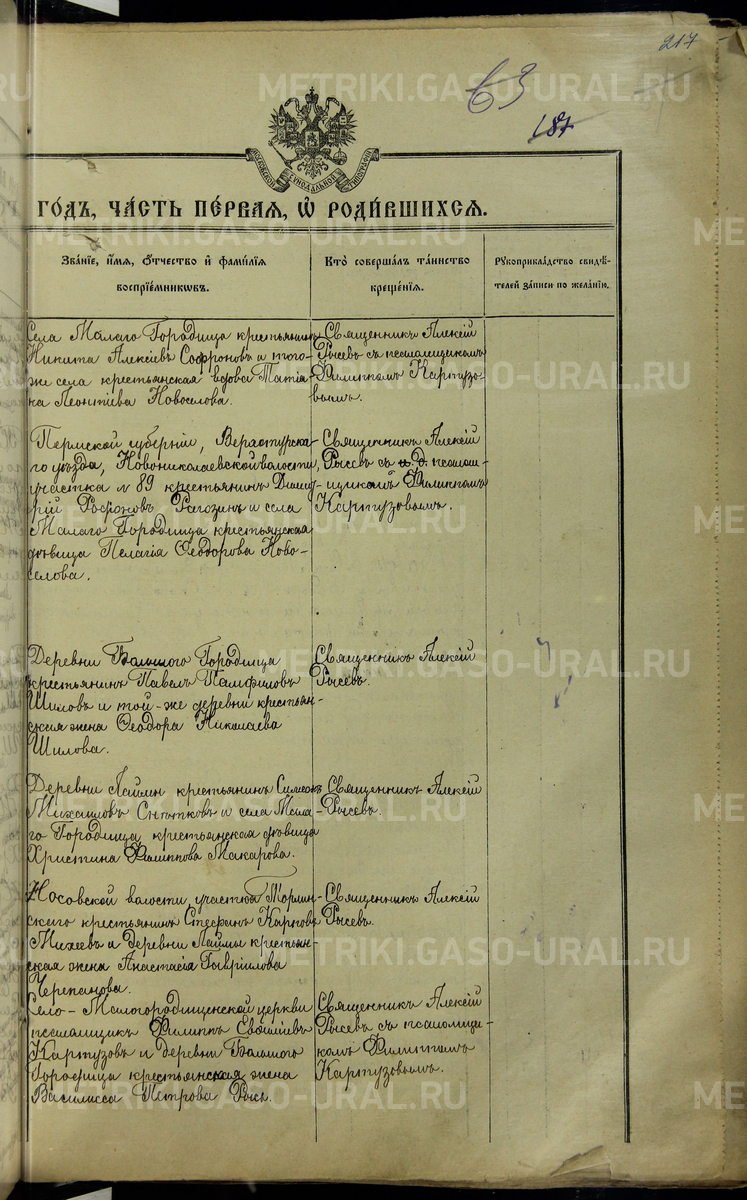 217
63
187
METRIKI.GASO-URAL.RU
МОСКОВСКОЙ СѴНОДАЛЬНОЙ ТИПОГРАФІИ
ГОДЪ, ЧАСТЬ ПЕРВАЯ, Ѡ РОДИВШИХСЯ.
Званіе, имя, отчество и фамилія
воспріемниковъ.
Кто совершалъ таинство
крещенія.
Рукоприкладство свидѣ-
телей записи по желанію.
Села Малаго Городища крестьянинъ
Никита Алексіевъ Софроновъ и того-
же села крестьянская вдова Татія-
на Леонтіева Новоселова.
Священникъ Алексій
Рысевъ съ псаломщикомъ
Филиппомъ Картузо-
вымъ.
Пермской губерніи, Верхотурска-
го уѣзда, Новониколаевской волости,
участка № 89 крестьянинъ Дими-
рій Рогозинъ и села
Малаго Городища крестьянская
дѣвица Пелагія Ѳеодорова Ново-
селова.
Священникъ Алексій
Рысевъ съ и. д. псалом-
щикомъ Филиппомъ
Картузовымъ.
Деревни Большого Городища
крестьянинъ Павелъ Памфиловъ
Шиловъ и той-же деревни крестьян-
ская жена Ѳеодора Николаева
Шилова.
Священникъ Алексій
Рысевъ.
Деревни Лаймы крестьянинъ Симеонъ
Михаиловъ Снытковъ и села Мала-
го Городища крестьянская дѣвица
Христина Филиппова Макарова.
Священникъ Алексій
Рысевъ.
Носовской волости, участка
крестьянинъ Стефанъ Карповъ
Михеевъ и деревни Лаймы крестьян-
ская жена Анастасія Гавріилова
Черепанова.
Священникъ Алексій
Рысевъ.
Село-Малогородищенской церкви
псаломщикъ Филиппъ
Картузовъ и деревни Большого
Городища крестьянская жена
Василисса Петрова Рысь.
Священникъ Алексій
Рысевъ съ псаломщи-
комъ Филиппомъ
Картузовымъ.